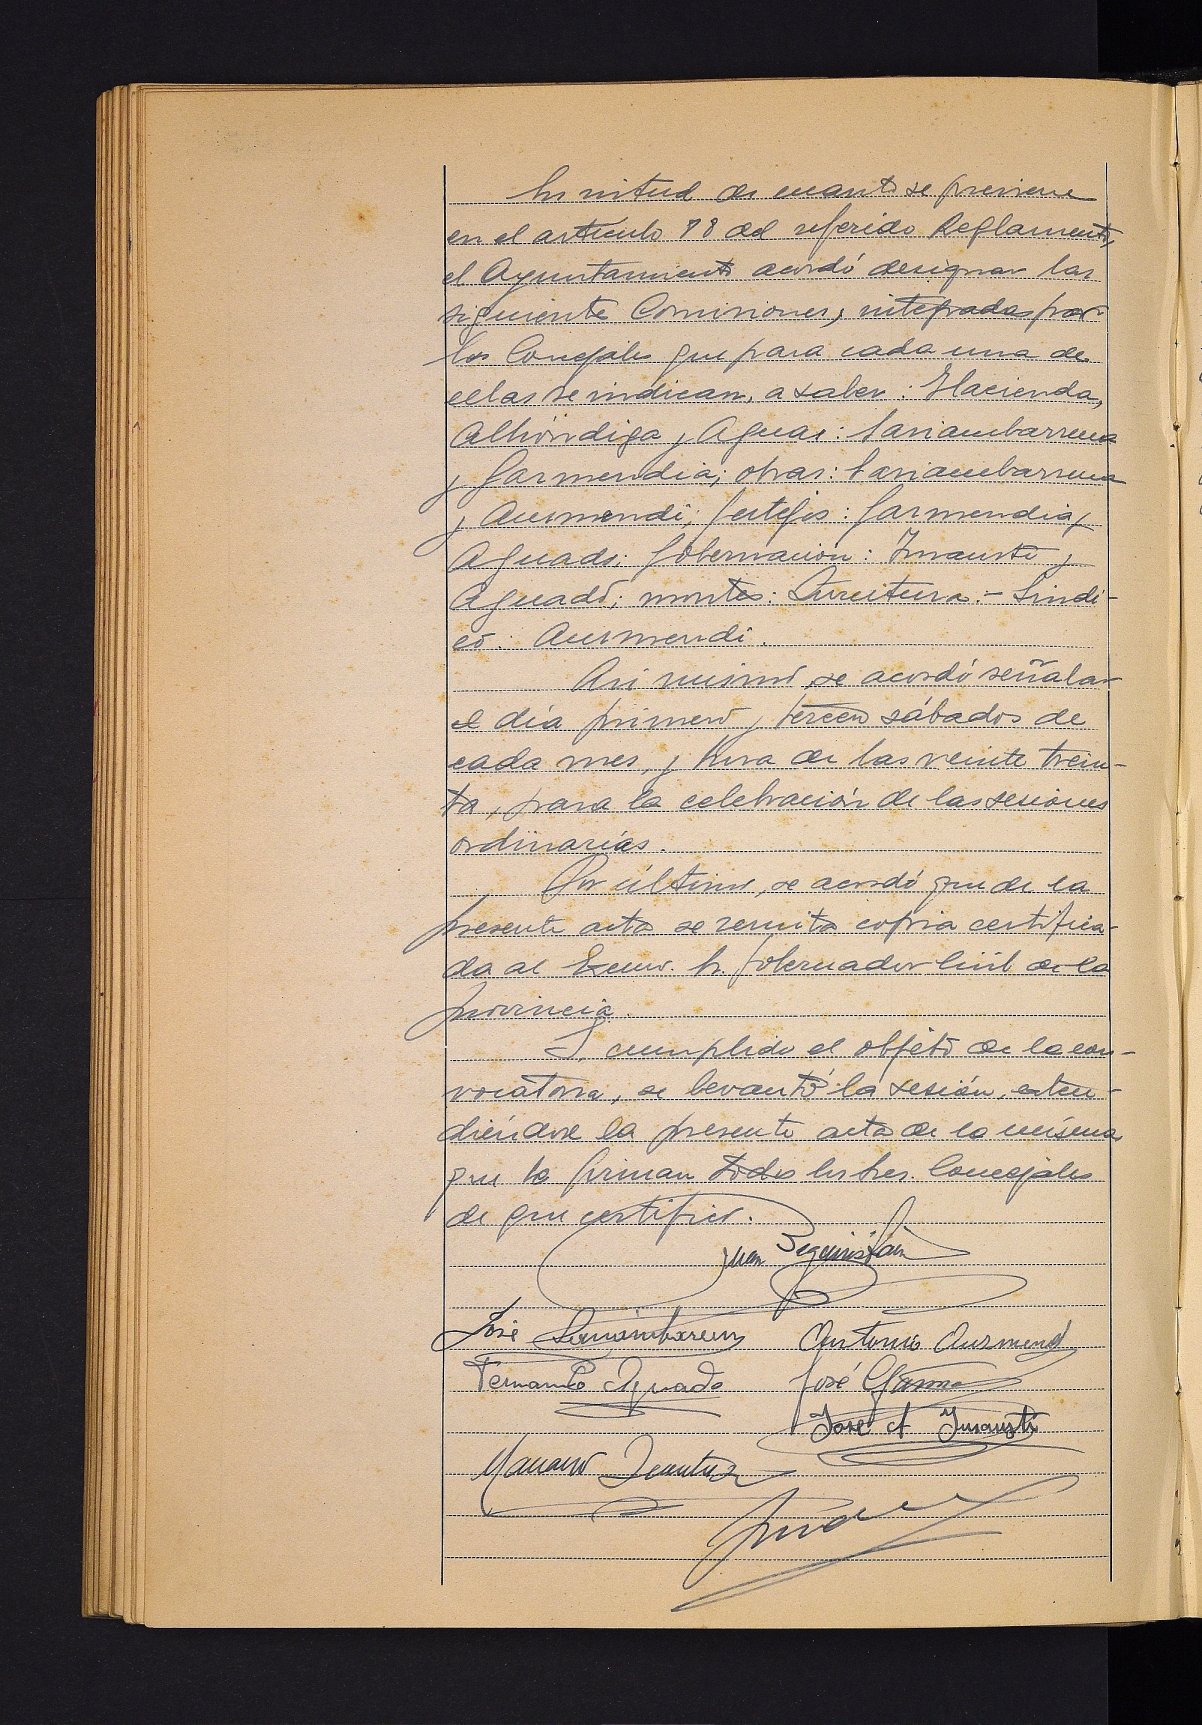 En virtud de cuanto se previene
en el artículo 78 del referido Reglamento,
el Ayuntamiento acordó designar las
siguiente Comisiones, integradas por
los Concejales que para cada una de
ellas se indican, a saber: Hacienda,
Alhóndiga y Aguas: Sariambarrena
y Garmendia; obras: Sariambarrena
y Ausmendi; festejos: Garmendia y
Aguado; Gobernación: Insausti y
Aguado; montes: Iruretena.- Síndi-
co: Ausmendi.
Asi mismo, se acordó señalar
el día primero y tercero sábados de
cada mes, y hora de las veinte trein-
ta, para la celebración de las sesiones
ordinarias.
Por último, se acordó que de la
presente acta se remita copia certifica-
da al Excmo. Sr. Gobernador Civil de la
provincia.
Y cumplido el objeto de la con-
vocatoria, se levantó la sesión, exten-
diéndose la presente acta de la misma
que la firman todos los Sres. Concejales
de que certifico.
Juan Beguiristain
José Sariambarrena Antonio Ausmendi
Fernando Aguado José Garme
José A Insausti
Mariano